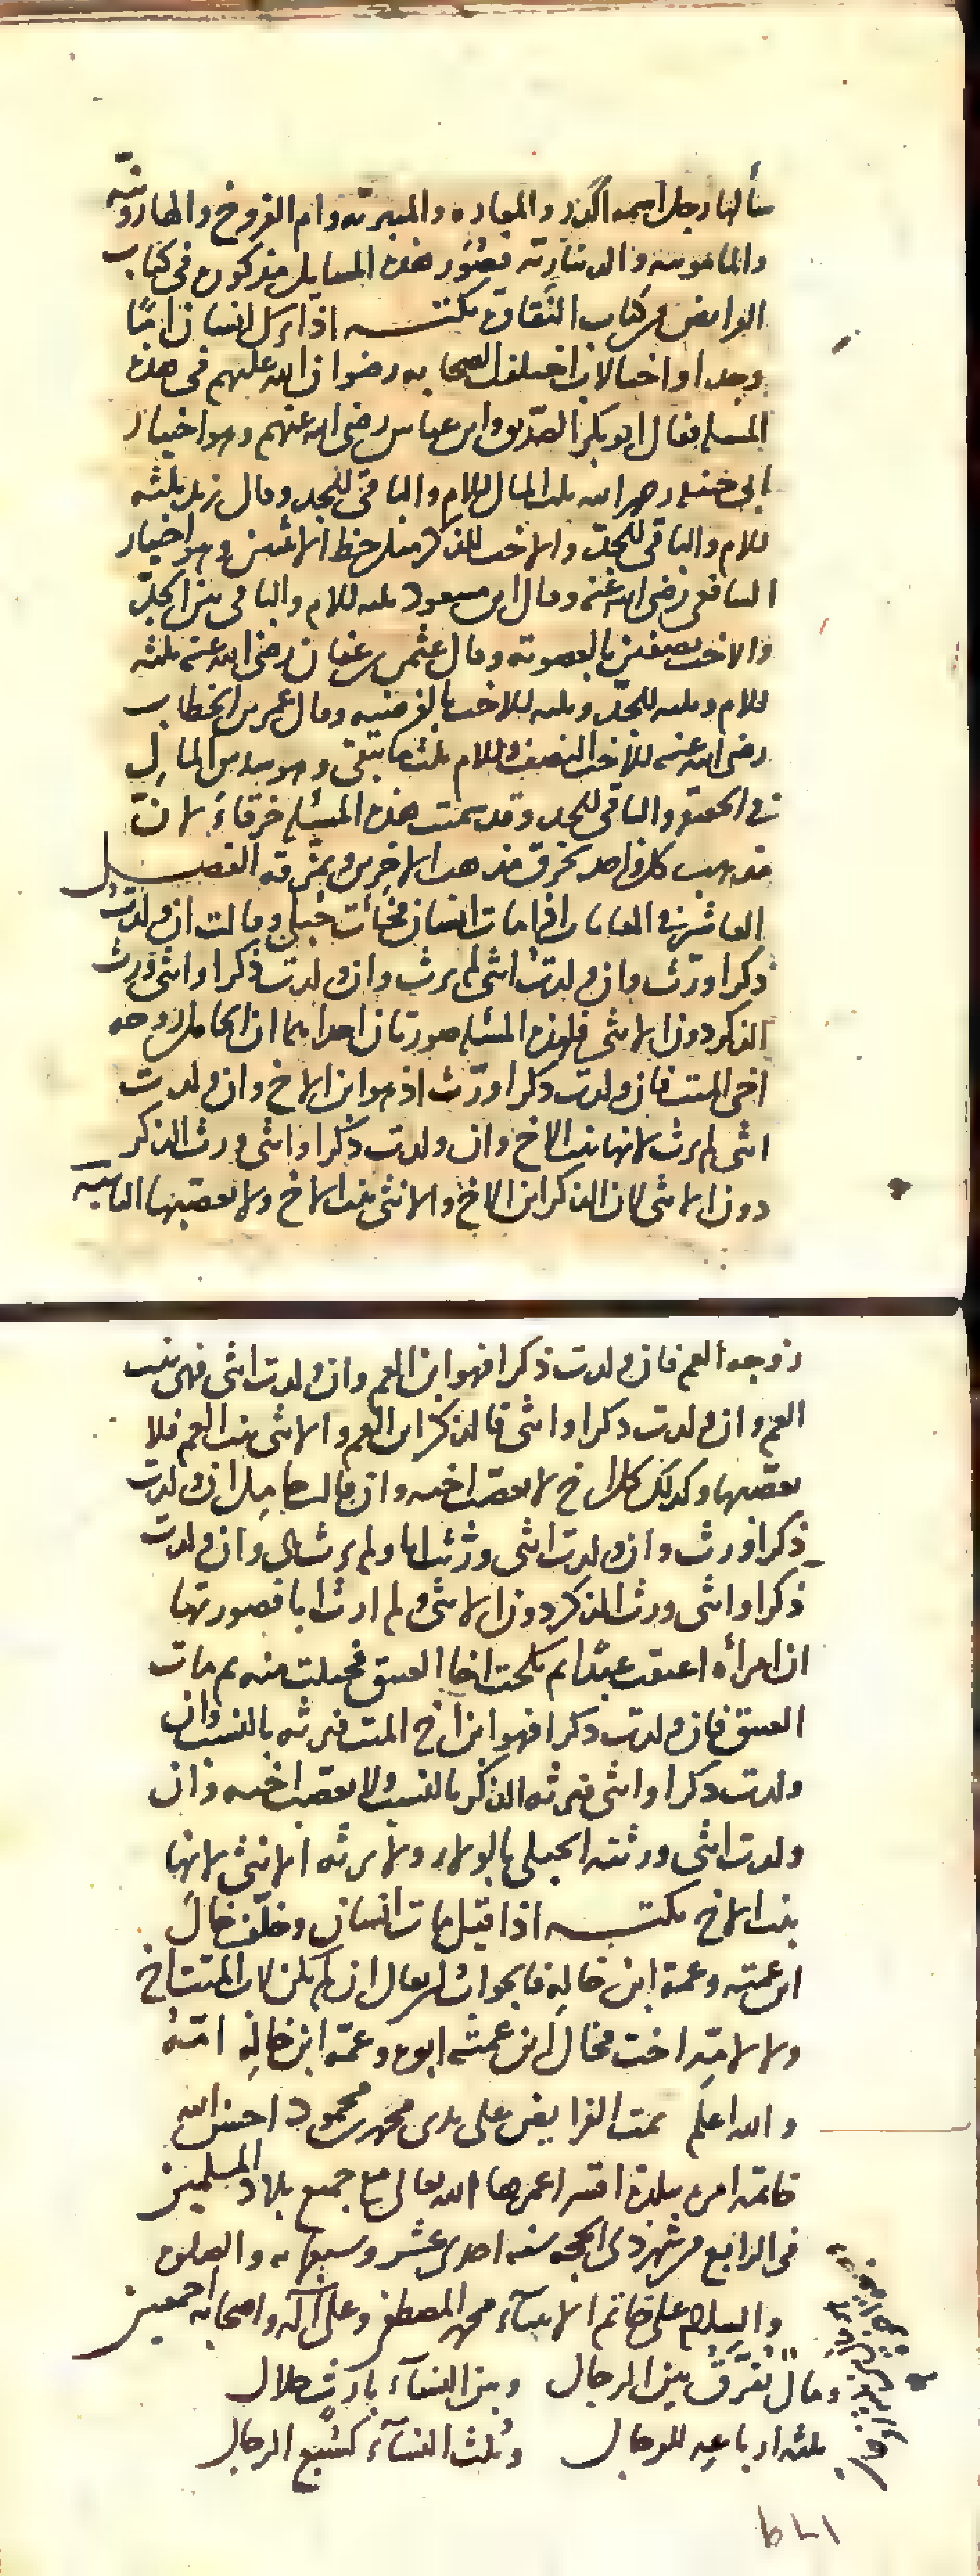 سألها رجل اسمه اكدر والمعاده والمنبريه وام الفروخ والهارونيه
والمامونيه والدينارية فصور هذه المسايل مذكورة في كتاب
الفرايض من كتاب النقاية نكتــه اذا ترك انسان اما
وجدا واختا لاب اختلف الصحابه رضوان الله عليهم في هذه
المسله فقال ابو بكر الصديق وابن عباس رضى الله عنهم وهو اختيار
ابى حنيفه رحمه الله ثلث المال للام والباقى للجد وقال زيد ثلثه
للام والباقى للجد والاخت للذكر مثل حظ الانثيين وهو اختيار
الشافعى رضى الله عنه وقال ابن مسعود ثلثه للام والباقى بين الجد
والاخت نصفين بالعصوبه وقال عثمن بن عفان رضى الله عنه ثلثه
للام وثلثه للجد وثلثه للاخت بالفرضيه وقال عمر بن الخطاب
رضى الله عنه للاخت النصف وللام ثلث ما تبقى وهو سدس المال
في الحقيقه والباقى للجد وقد سمت هذه المسله خرقاء لان
مذهب كل واحد يخرق مذهب الاخرين ويمزقه الفصــل
العاشر في المعاياه اذا مات انسان فجات حبلى وقالت ان ولدت
ذكرا ورث وان ولدت انثى لم يرث وان ولدت ذكرا وانثى ورث
الذكر دون الانثى فلهذه المسله صورتان احداهما ان الحامل زوجه
اخى الميت فان ولدت ذكرا ورث اذ هو ابن الاخ وان ولدت
انثى لم يرث لانها بنت الاخ وان ولدت ذكرا وانثى ورث الذكر
دون الانثى لان الذكر ابن الاخ والانثى بنت الاخ ولا يعصبها الثانيه
زوجه العم فان ولدت ذكرا فهو ابن العم وان ولدت انثى فهى بنت
العم وان ولدت ذكرا وانثى فالذكر ابن العم والانثى بنت العم فلا
يعصبها وكذلك كل اخ لا يعصب اخته وان قالت حامل ان ولدت
ذكرا ورث وان ولدت انثى ورثت انا ولم يرث هى وان ولدت
ذكرا وانثى ورث الذكر دون الانثى ولم ارث انا فصورتها
ان امرأه اعتقت عبدا ثم نكحت اخا العتيق فحبلت منه ثم مات
العتيق فان ولدت ذكرا فهو ابن اخ الميت فيرثه بالنسب وان
ولدت ذكرا وانثى فيرثه الذكر بالنسب ولا يعصب اخته وان
ولدت انثى ورثته الحبلى بالولاء ولا يرثه الانثى لانها
بنت الاخ نكتــه اذا قيل مات انسان وخلف خال
ابن عمته وعمة ابن خاله فالجواب ان يقال ان لم يكن لاب الميت اخ
ولا لامه اخت فخال ابن عمته ابوه وعمة ابن خاله امه
والله اعلم تمت الفرايض على يدى محمد بن محمود احسن الله
خاتمة امره ببلدة اقسرا عمرها الله تعالى مع جميع بلاد المسلمين
في الرابع من شهر ذى الحجه سنه احدى عشر وسبعمايه والصلوة
والسلام على خاتم الانبياء محمد المصطفى وعلى آله واصحابه اجمعين
ومال تفرق بين الرجال وبين النساء بارث حلال
ثلثه ارباعه للرجال وثلث النساء كتسع الرجال